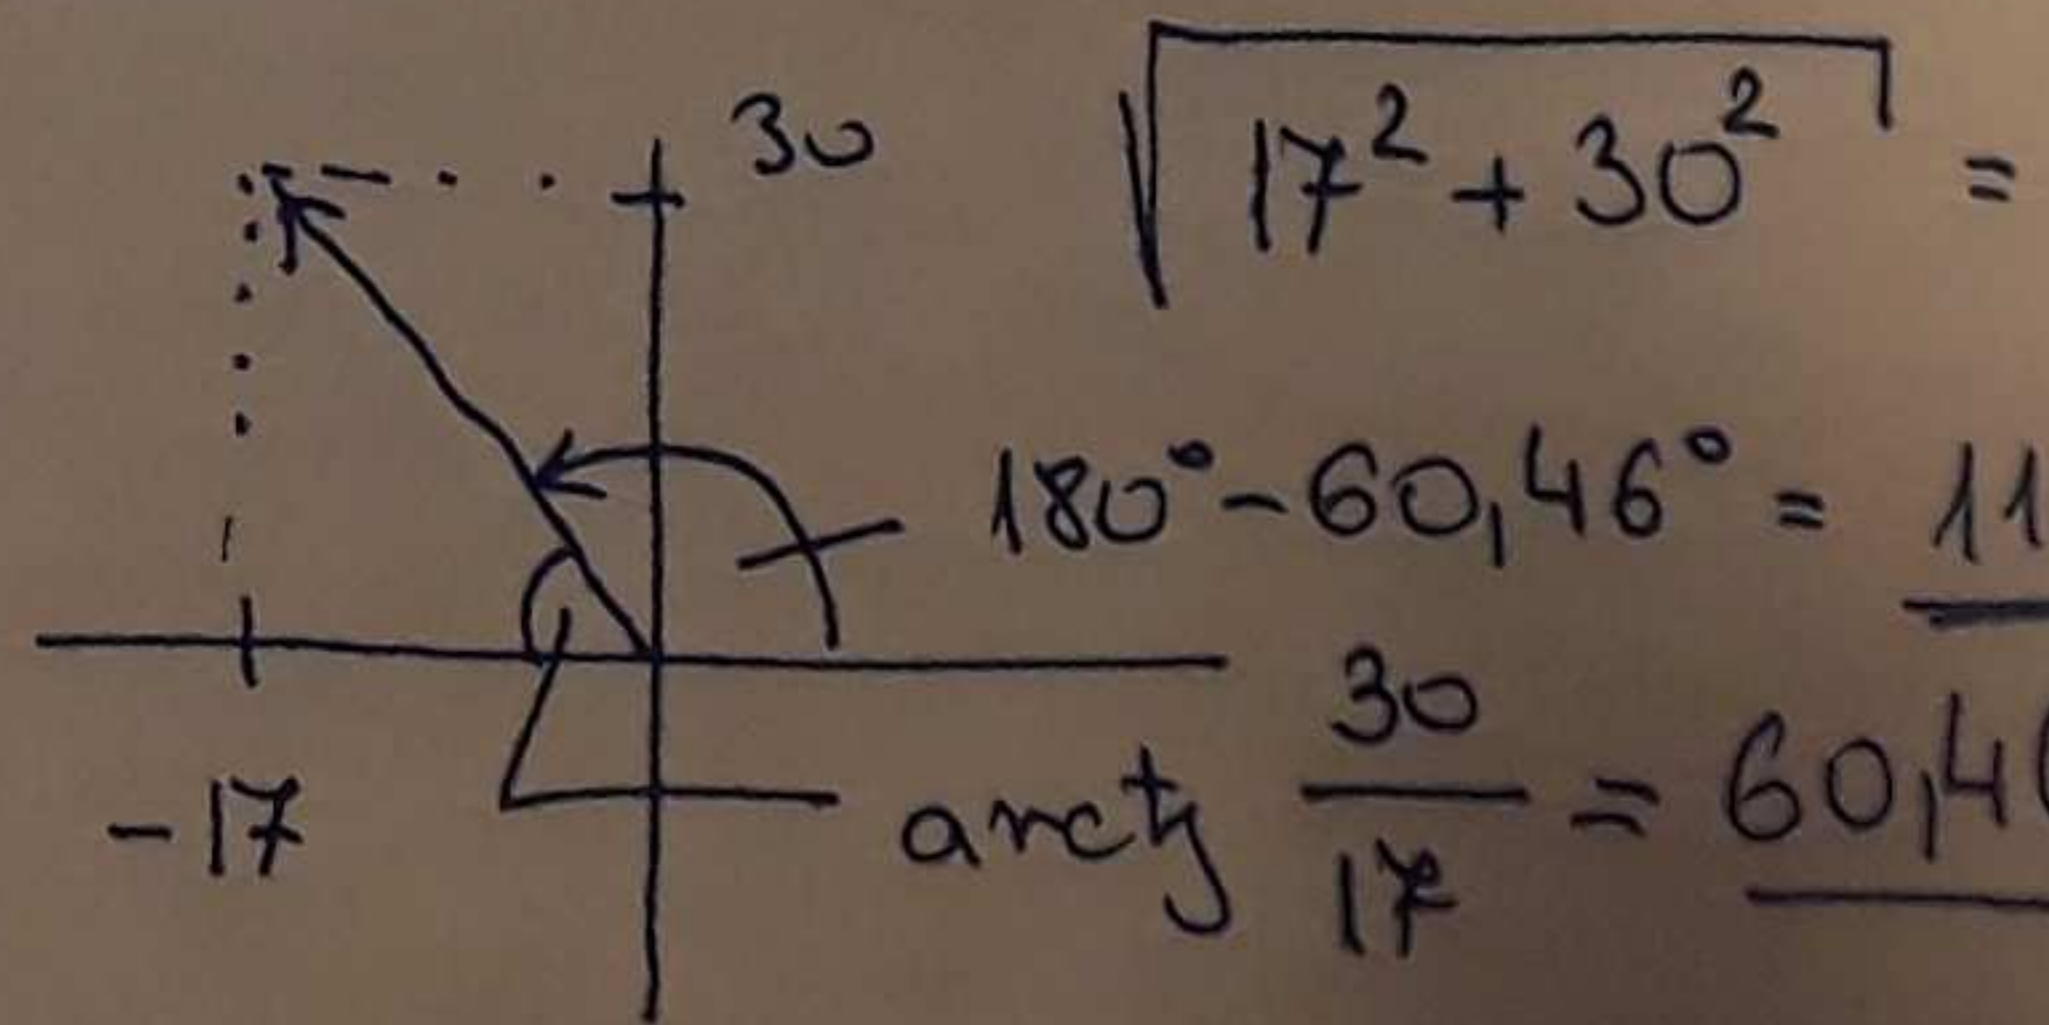 30
√17² + 30² =
180° - 60,46° = 11
-17
arctg 30/17 = 60,4